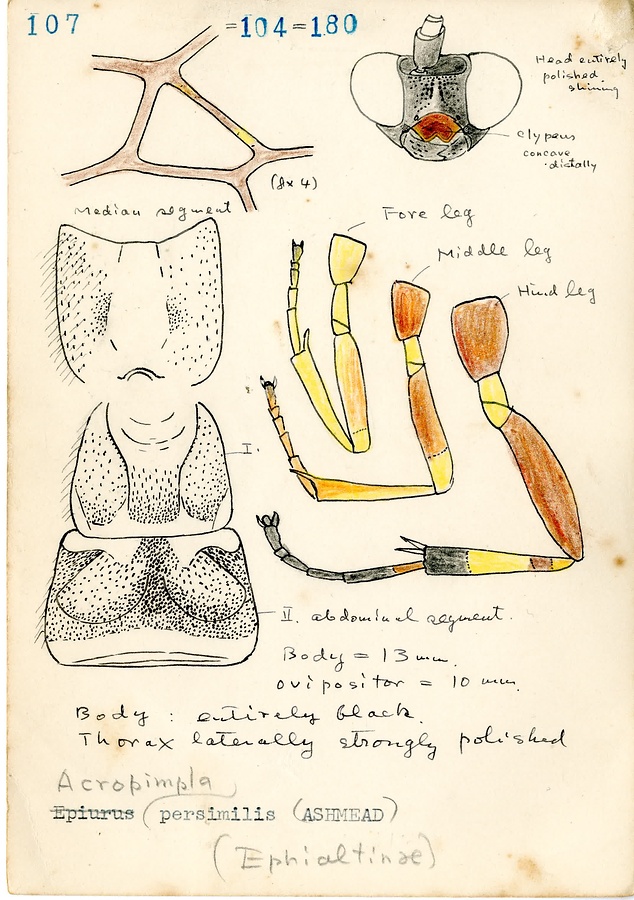 107
=104=180
Head entirely
polished.
shining
clypeus
concave
distally
(8x4)
Median segment
Fore leg
Middle leg
Hind leg
I.
II. abdominal segment.
Body = 13 mm.
ovipositor = 10 mm.
Body : entirely black.
Thorax laterally strongly polished
Acropimpla
Epiurus (persimilis (ASHMEAD)
(Ephialtinae)